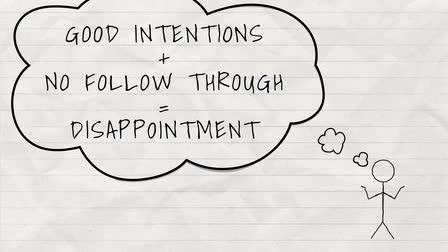 GOOD INTENTIONS
+
NO FOLLOW THROUGH
=
DISAPPOINTMENT